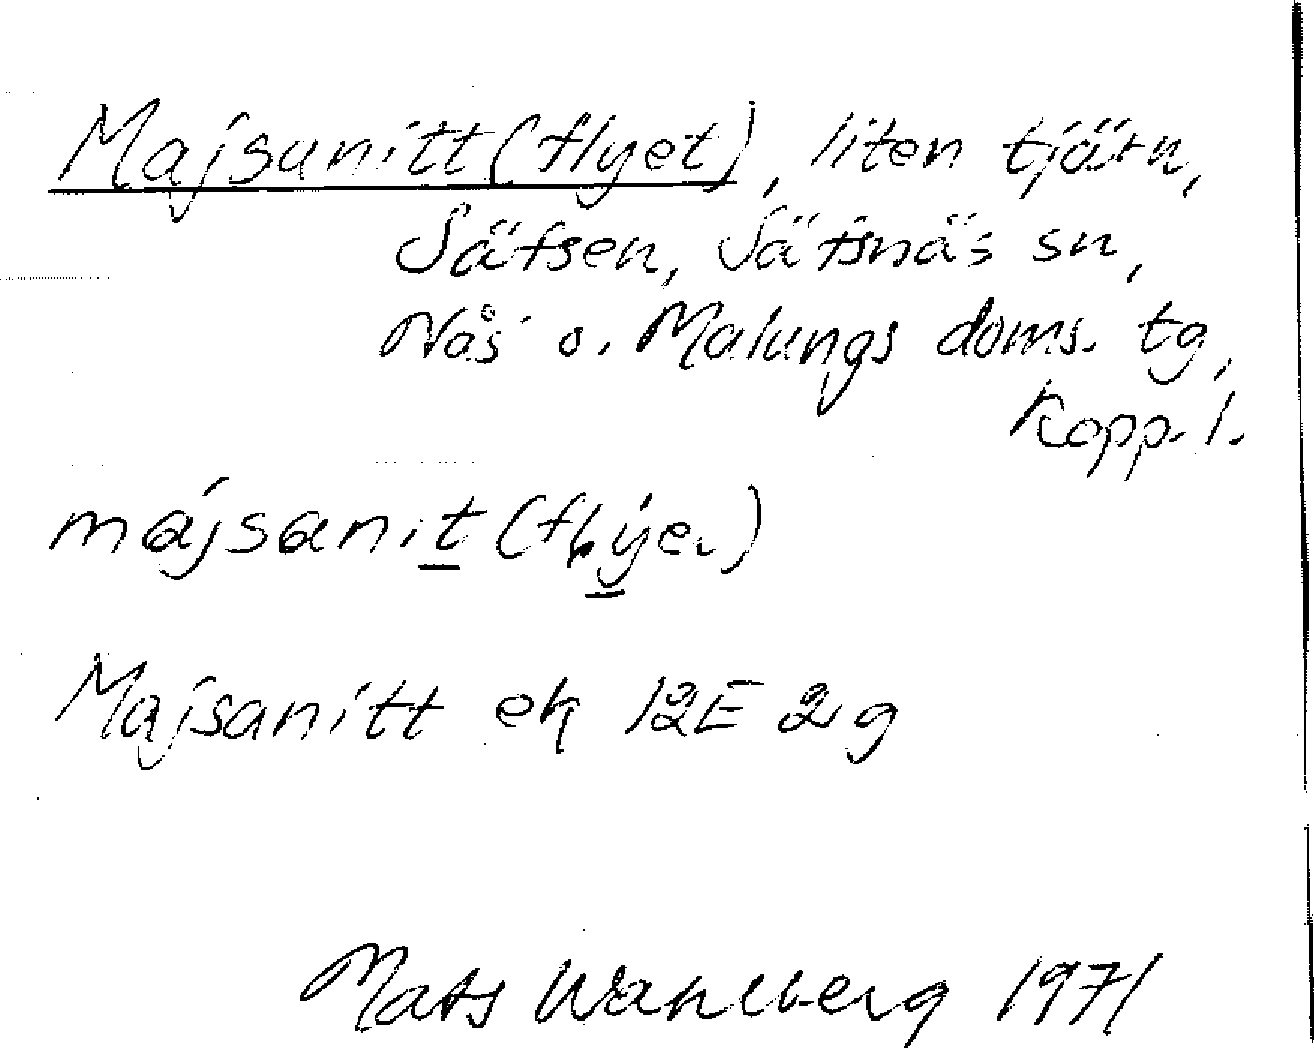 Majsanitt(flyet), liten tjärn,
Säfsen, Säfsnäs sn,
Nås o. Malungs doms. tg,
Kopp. l.
májsanit (flýe)
Majsanitt ek 12E 2g
Mats Wahlberg 1971